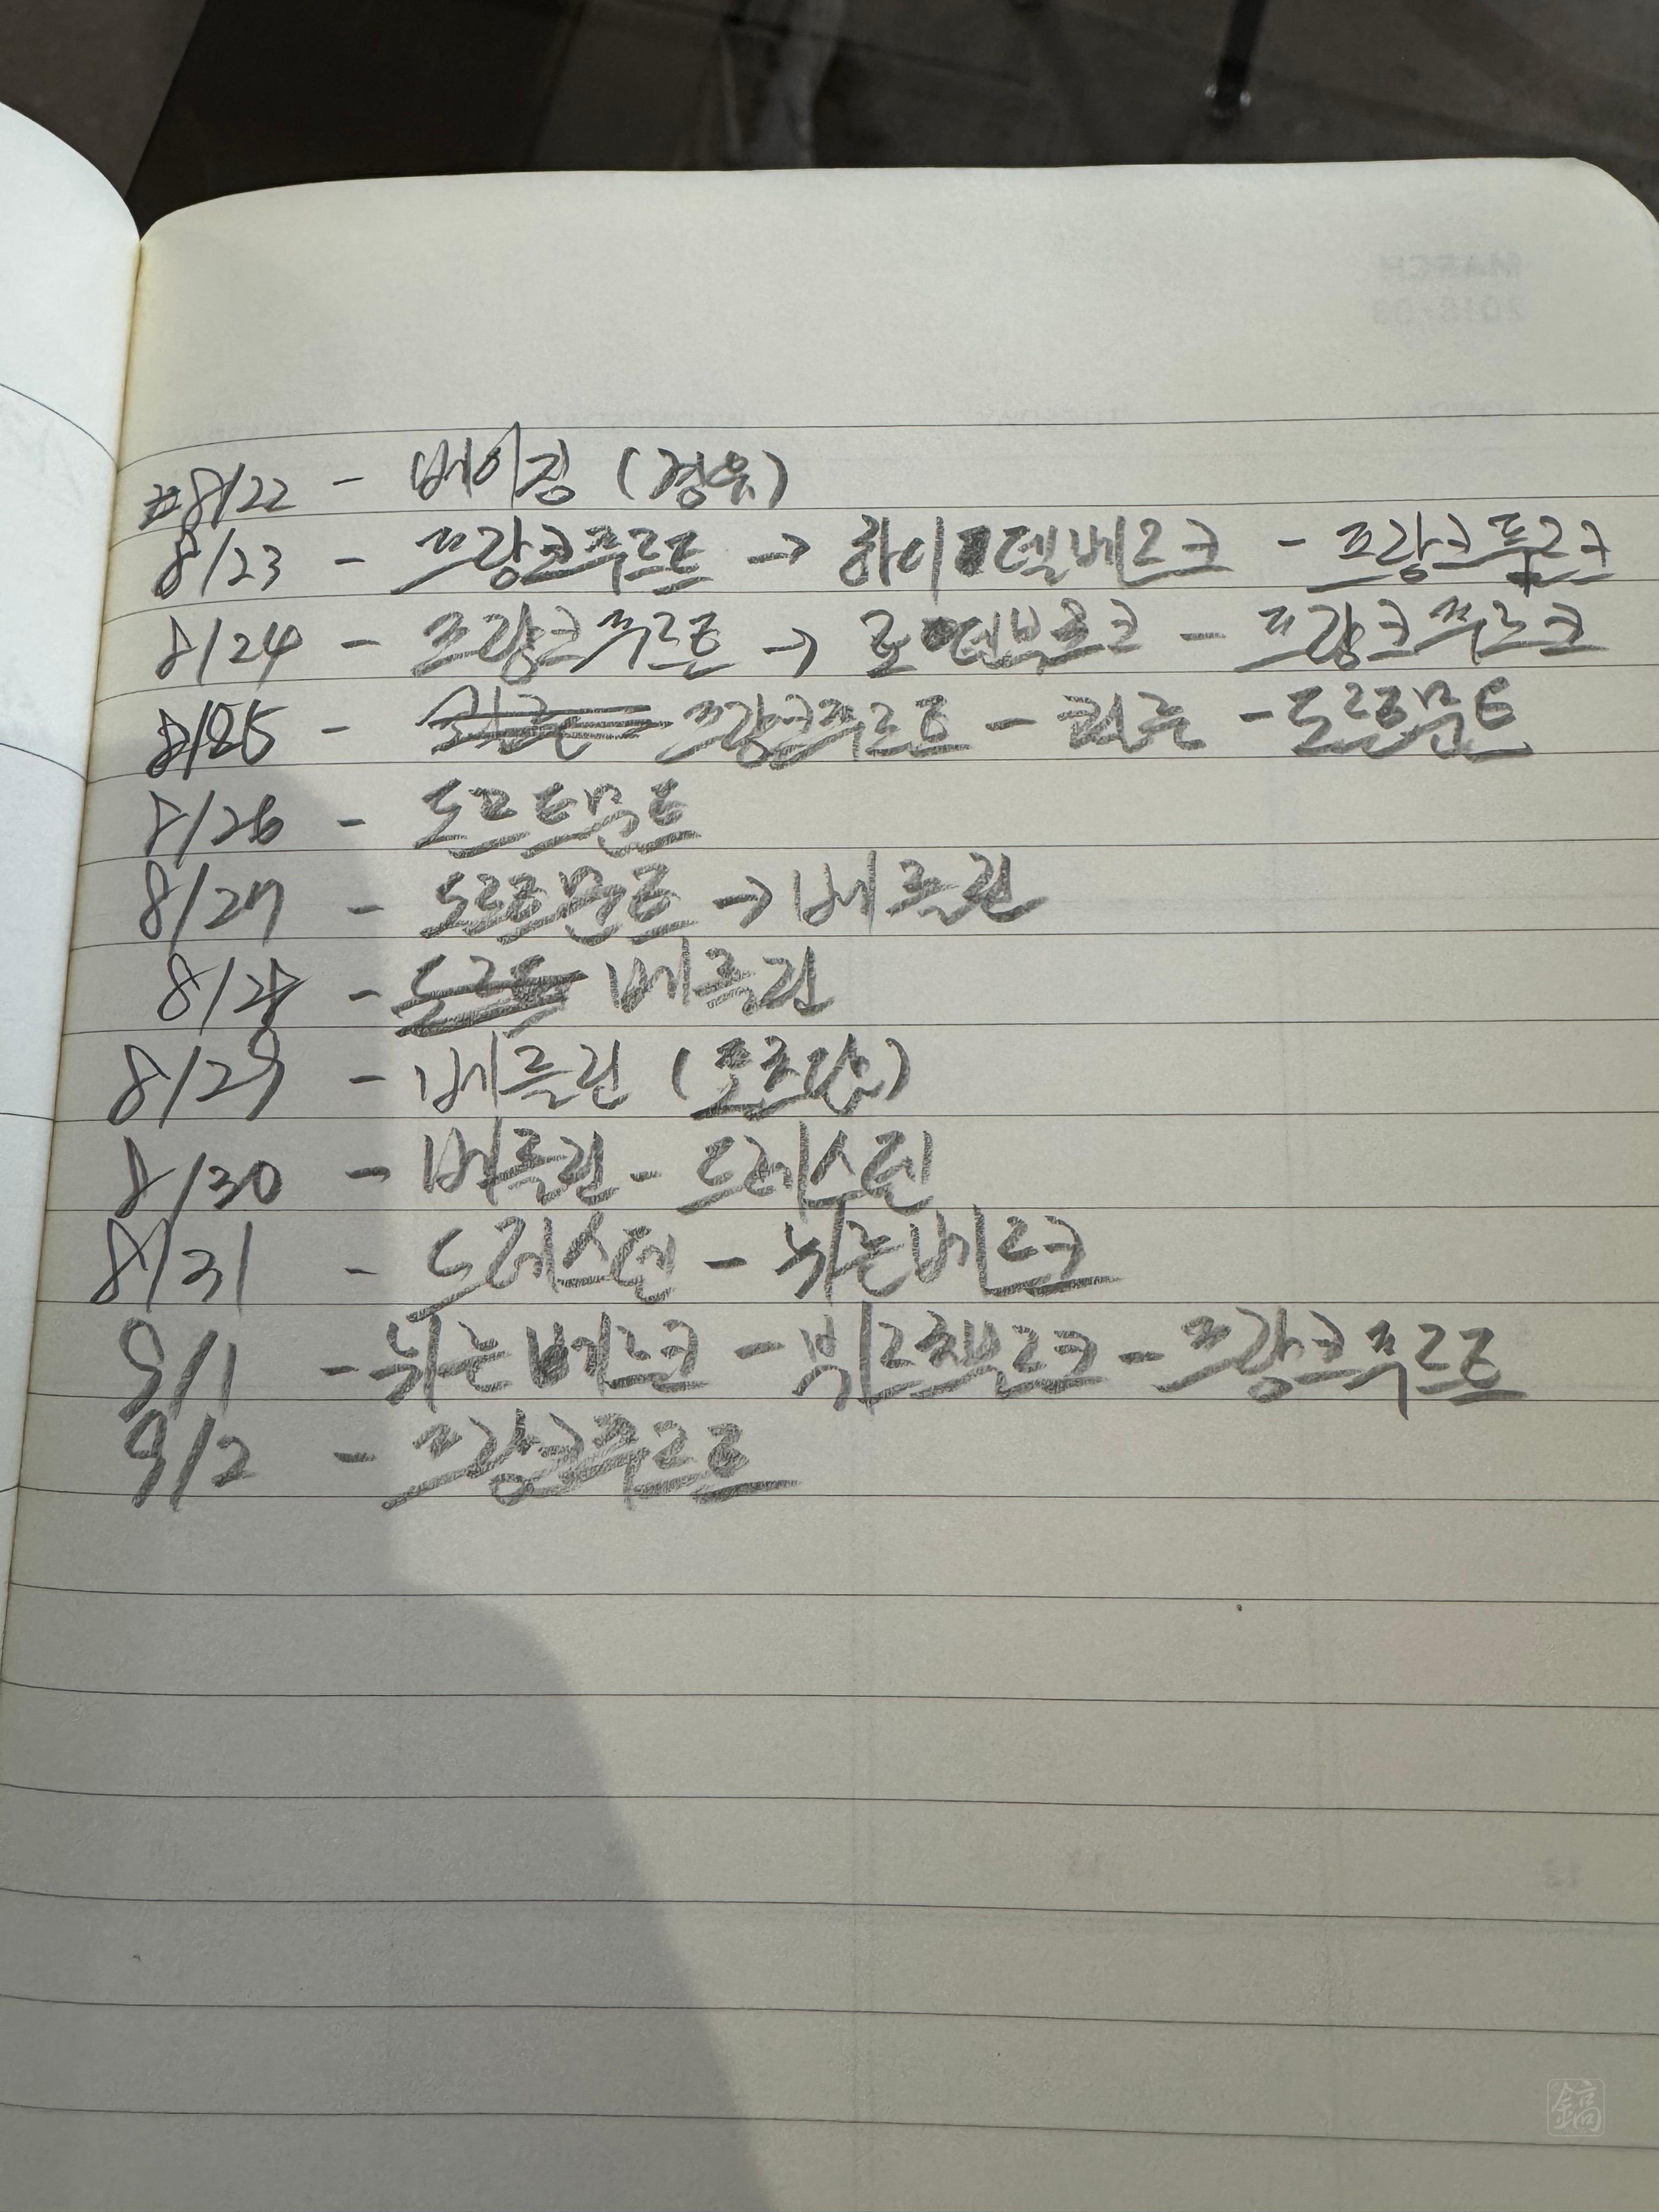 MARCH
2018/03
#8/22 - 베이징 (경유)
8/23 - 프랑크푸르트 → 하이델베르크 - 프랑크푸르크
8/24 - 프랑크푸르트 → 로텐부르크 - 프랑크푸르크
8/25 - 프랑크푸르트 - 쾰른 - 도르트문트
8/26 - 도르트문트
8/27 - 도르트문트 → 베를린
8/28 - 베를린
8/29 - 베를린 (포츠담)
8/30 - 베를린 - 드레스덴
8/31 - 드레스덴 - 뉘른베르크
9/1 - 뉘른베르크 - 뷔르츠부르크 - 프랑크푸르트
9/2 - 프랑크푸르트
13
12
鎬